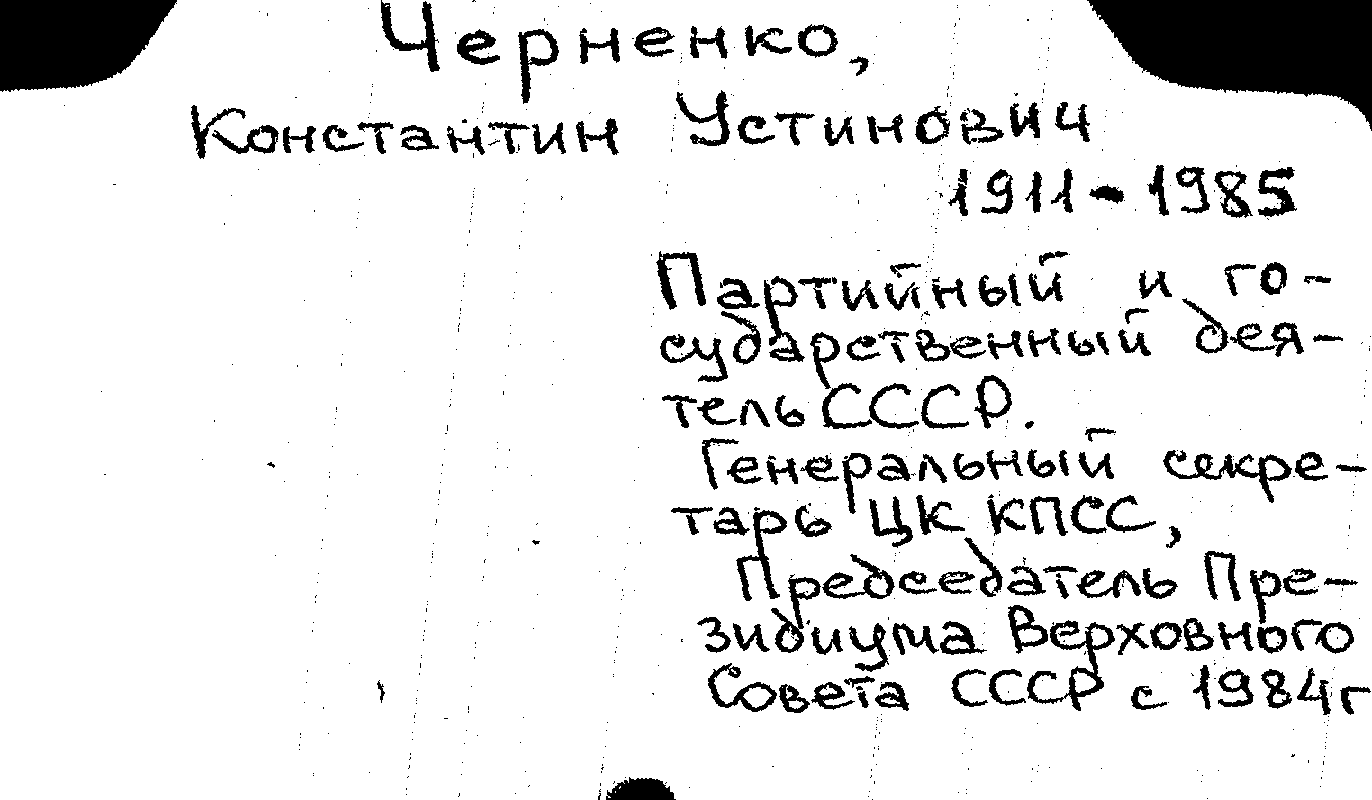 Черненко,
Константин Устинович
1911-1985
Партийный и го-
сударственный дея-
тель СССР.
Генеральный секре-
тарь ЦК КПСС,
Председатель Пре-
зидиума Верховного
Совета СССР с 1984г